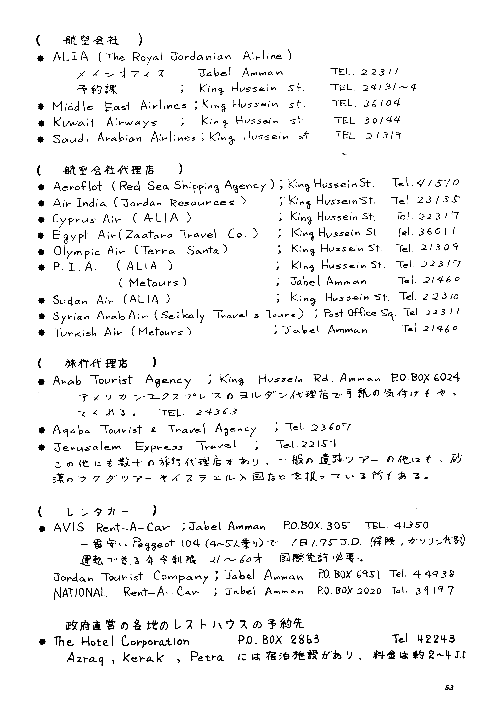 ( 航空会社 )
● ALIA (The Royal Jordanian Airline)
メインオフィス Jabel Amman TEL. 22311
予約課 ; King Hussein St. TEL. 24131~4
● Middle East Airlines ; King Hussein st. TEL. 36104
● Kuwait Airways ; King Hussein St. TEL. 30144
● Saudi Arabian Airlines ; King Hussein st TEL. 21319
( 航空会社代理店 )
● Aeroflot (Red Sea Shipping Agency) ; King Hussein St. Tel. 41510
● Air India (Jordan Resources) ; King Hussein St. Tel 23135
● Cyprus Air (ALIA) ; King Hussein St. Tel. 22317
● Egypt Air (Zaatara Travel Co.) ; King Hussein St Tel. 36011
● Olympic Air (Terra Santa) ; King Hussein St. Tel. 21309
● P.I.A. (ALIA) ; King Hussein St. Tel. 22317
(Metours) ; Jabel Amman Tel. 21460
● Sudan Air (ALIA) ; King Hussein St. Tel. 22310
● Syrian Arab Air (Seikaly Travel & Tours) ; Post Office Sq. Tel 22311
● Turkish Air (Metours) ; Jabel Amman Tel 21460
( 旅行代理店 )
● Arab Tourist Agency ; King Hussein Rd. Amman P.O.BOX 6024
アメリカンエクスプレスのヨルダン代理店で手紙の受付けもやっ
てくれる。 TEL. 24363
● Aqaba Tourist & Travel Agency ; Tel. 23607
● Jerusalem Express Travel ; Tel. 22151
この他にも数十の旅行代理店があり、一般の遺跡ツアーの他にも、砂
漠のラクダツアーやイスラエル入国などを扱っている所もある。
( レンタカー )
● AVIS Rent-A-Car ; Jabel Amman P.O.BOX. 305 TEL. 41350
一番安いPeggeot 104 (4~5人乗り)で 1日1.75 J.D. (保険、ガソリン代別)
運転できる年令制限 21~60才 国際免許必要。
Jordan Tourist Company ; Jabel Amman P.O.BOX 6951 Tel. 44938
NATIONAL Rent-A-Car ; Jabel Amman P.O.BOX 2020 Tel. 39197
政府直営の各地のレストハウスの予約先
● The Hotel Corporation P.O. BOX 2863 Tel 42243
Azraq, Kerak, Petra には宿泊施設があり、料金は約2~4 J.D
53